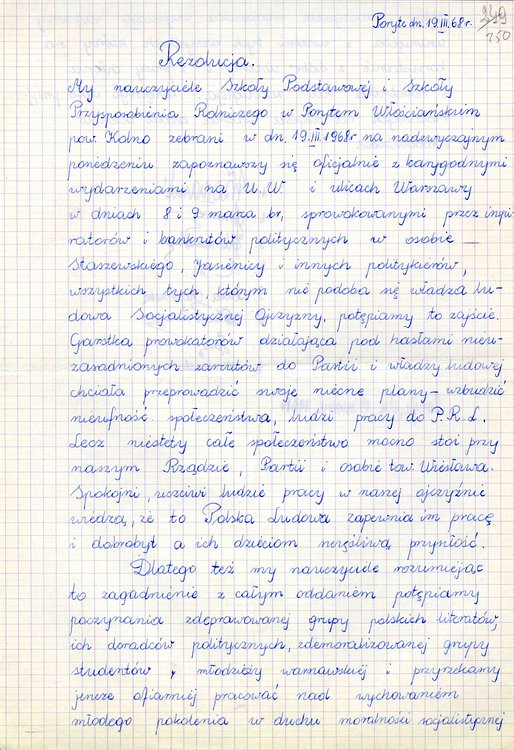 Poryte dn. 19.III.68r.
249
250
Rezolucja.
My nauczyciele Szkoły Podstawowej i Szkoły
Przysposobienia Rolniczego w Porytem Włościańskim
pow. Kolno zebrani w dn. 19.III.1968r na nadzwyczajnym
posiedzeniu zapoznawszy się oficjalnie z karygodnymi
wydarzeniami na U.W. i ulicach Warszawy
w dniach 8 i 9 marca br, sprowokowanymi przez inspi-
ratorów i bankrutów politycznych w osobie
Staszewskiego, Jasienicy i innych politykierów,
wszystkich tych, którym nie podoba się władza lu-
dowa Socjalistycznej Ojczyzny, potępiamy to zajście.
Garstka prowokatorów działająca pod hasłami nieu-
zasadnionych zarzutów do Partii i władzy ludowej
chciała przeprowadzić swoje niecne plany – wzbudzić
nieufność społeczeństwa, ludzi pracy do P.R.L.
Lecz niestety całe społeczeństwo mocno stoi przy
naszym Rządzie, Partii i osobie tow. Wiesława.
Spokojni, uczciwi ludzie pracy w naszej ojczyźnie
wiedzą, że to Polska Ludowa zapewnia im pracę
i dobrobyt a ich dzieciom szczęśliwą przyszłość.
Dlatego też my nauczyciele rozumiejąc
to zagadnienie z całym oddaniem potępiamy
poczynania zdeprawowanej grupy polskich literatów,
ich doradców politycznych, zdemoralizowanej grupy
studentów, młodzieży warszawskiej i przyrzekamy
jeszcze ofiarniej pracować nad wychowaniem
młodego pokolenia w duchu moralności socjalistycznej